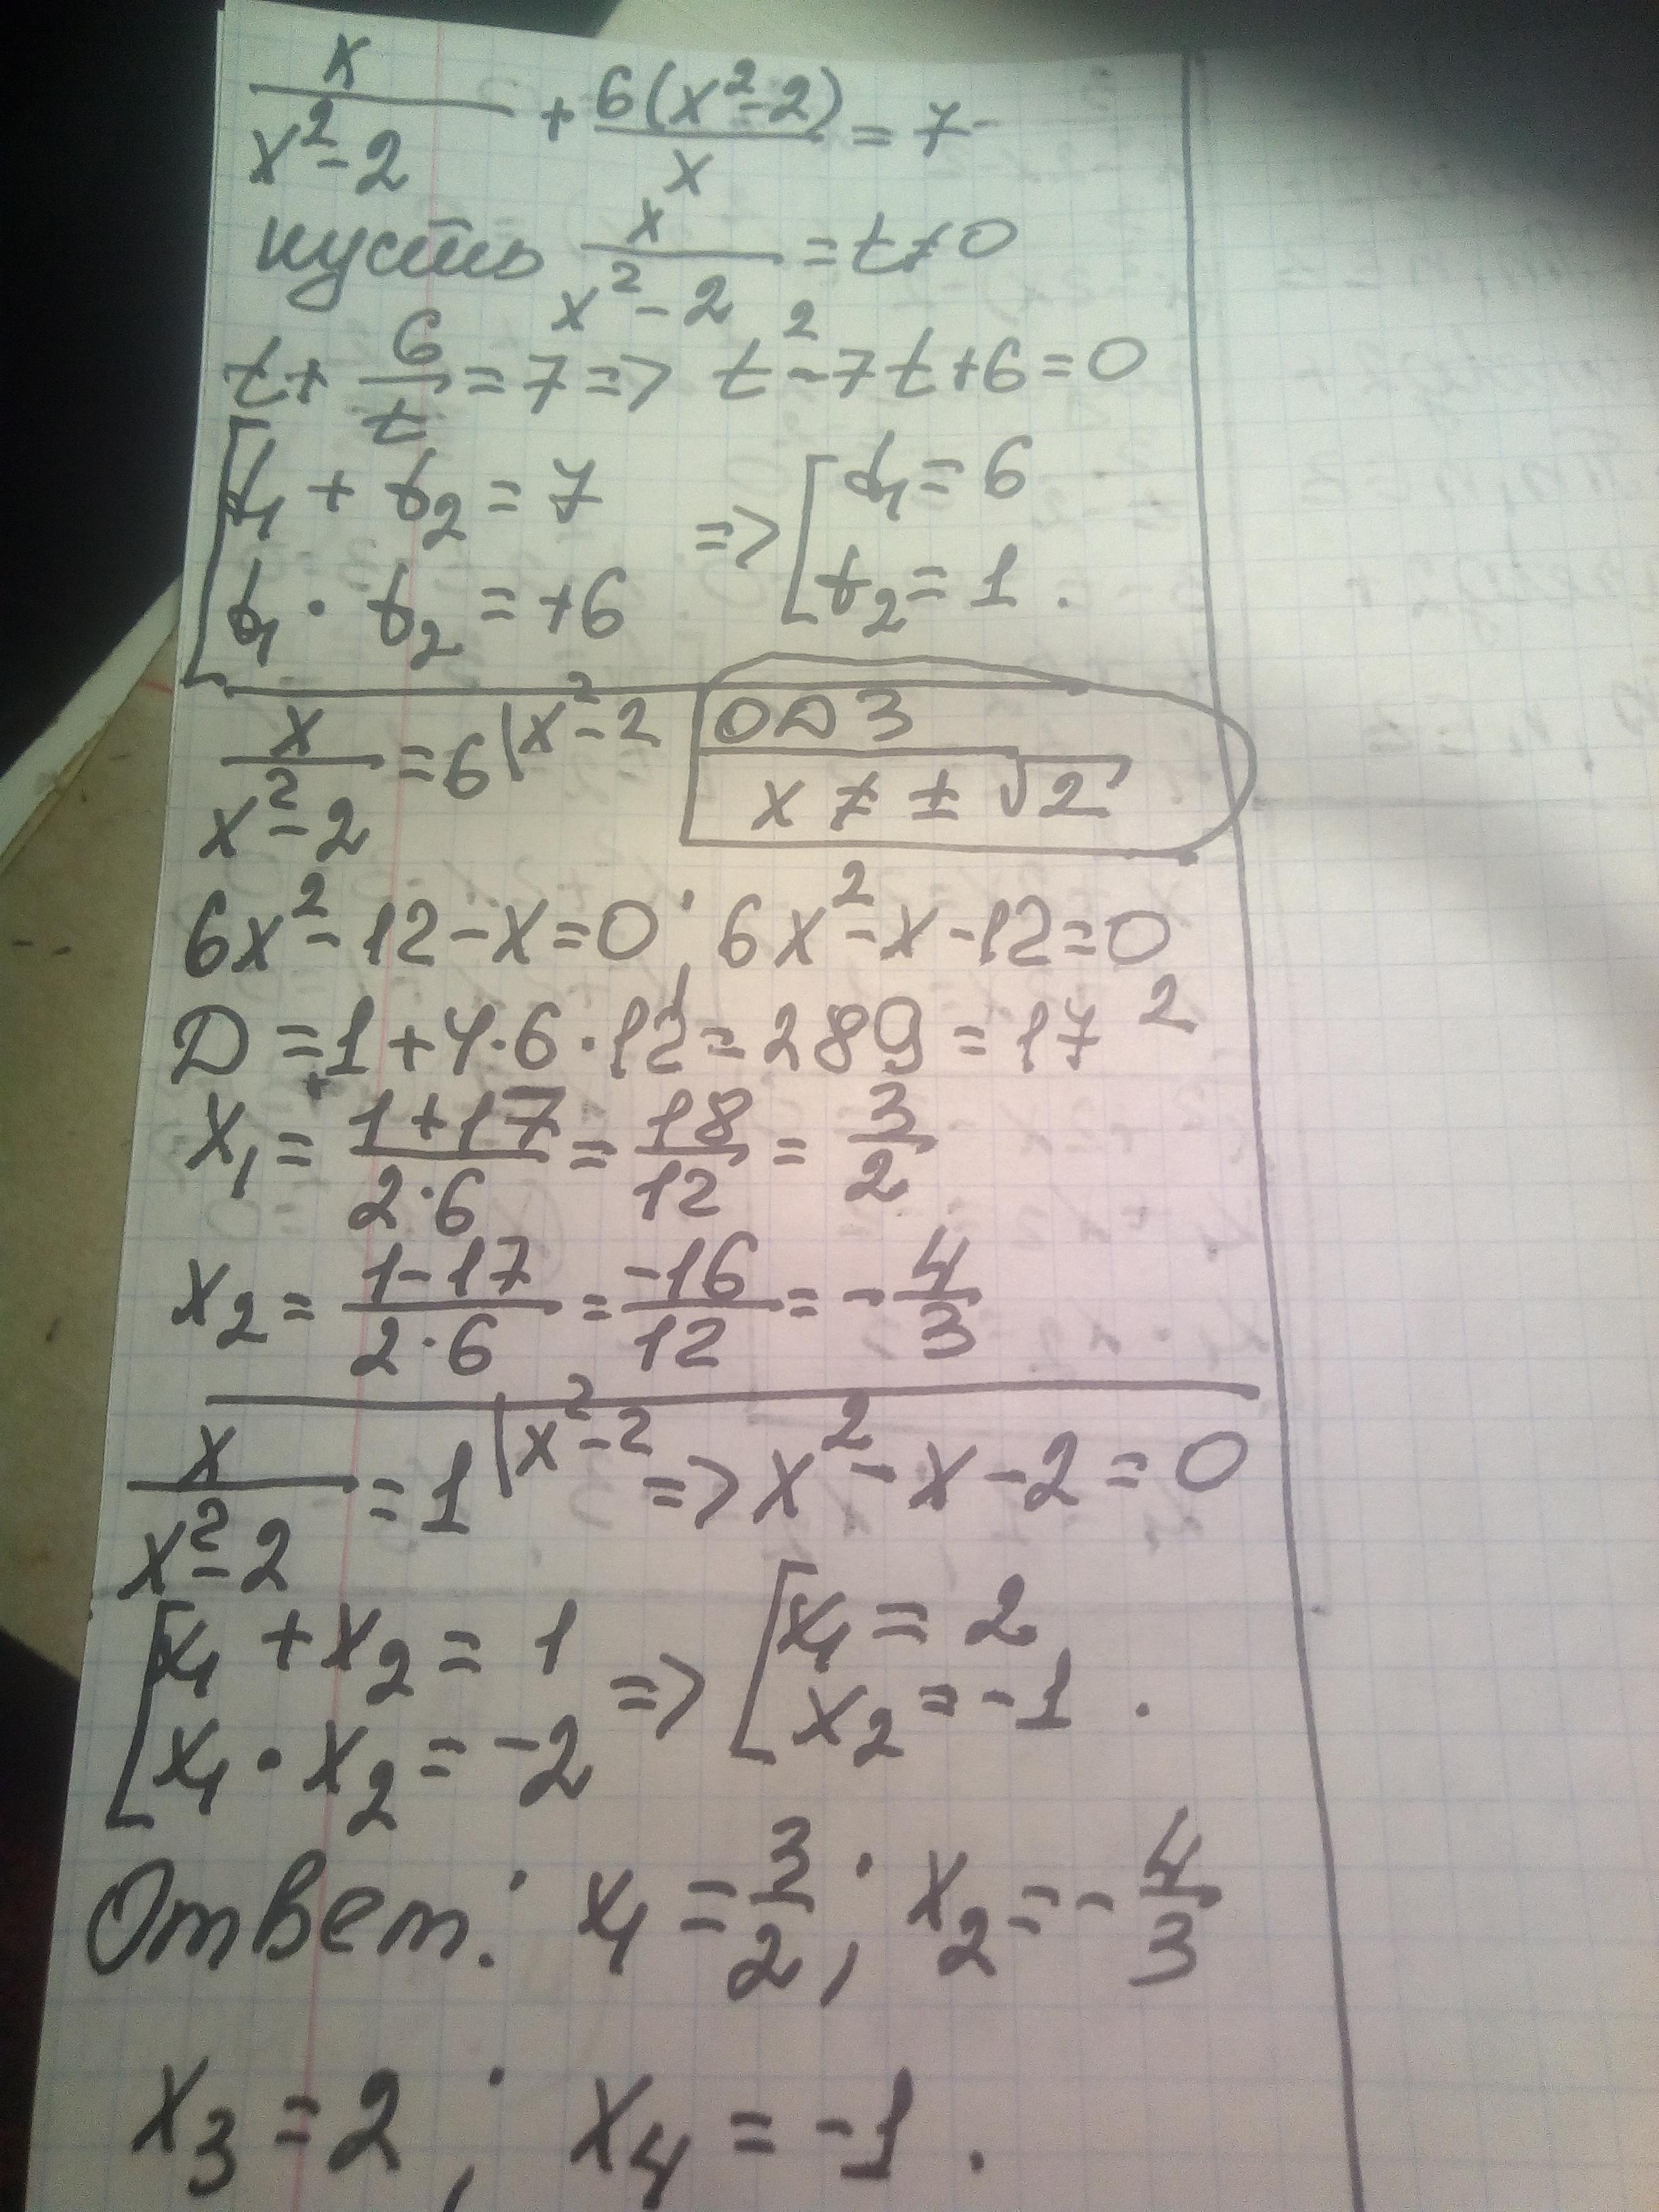 x/(x²-2) + 6(x²-2)/x = 7
пусть x/(x²-2) = t ≠ 0
t + 6/t = 7 => t² - 7t + 6 = 0
[t₁ + t₂ = 7 => [t₁ = 6
t₁ · t₂ = +6 t₂ = 1.
x/(x²-2) = 6 |x²-2
ОДЗ
x ≠ ± √2
6x² - 12 - x = 0; 6x² - x - 12 = 0
Д = 1 + 4·6·12 = 289 = 17²
x₁ = (1+17)/(2·6) = 18/12 = 3/2
x₂ = (1-17)/(2·6) = -16/12 = -4/3
x/(x²-2) = 1 |x²-2 => x² - x - 2 = 0
[x₁ + x₂ = 1 => [x₁ = 2
x₁ · x₂ = -2 x₂ = -1.
Ответ: x₁ = 3/2; x₂ = -4/3
x₃ = 2; x₄ = -1.